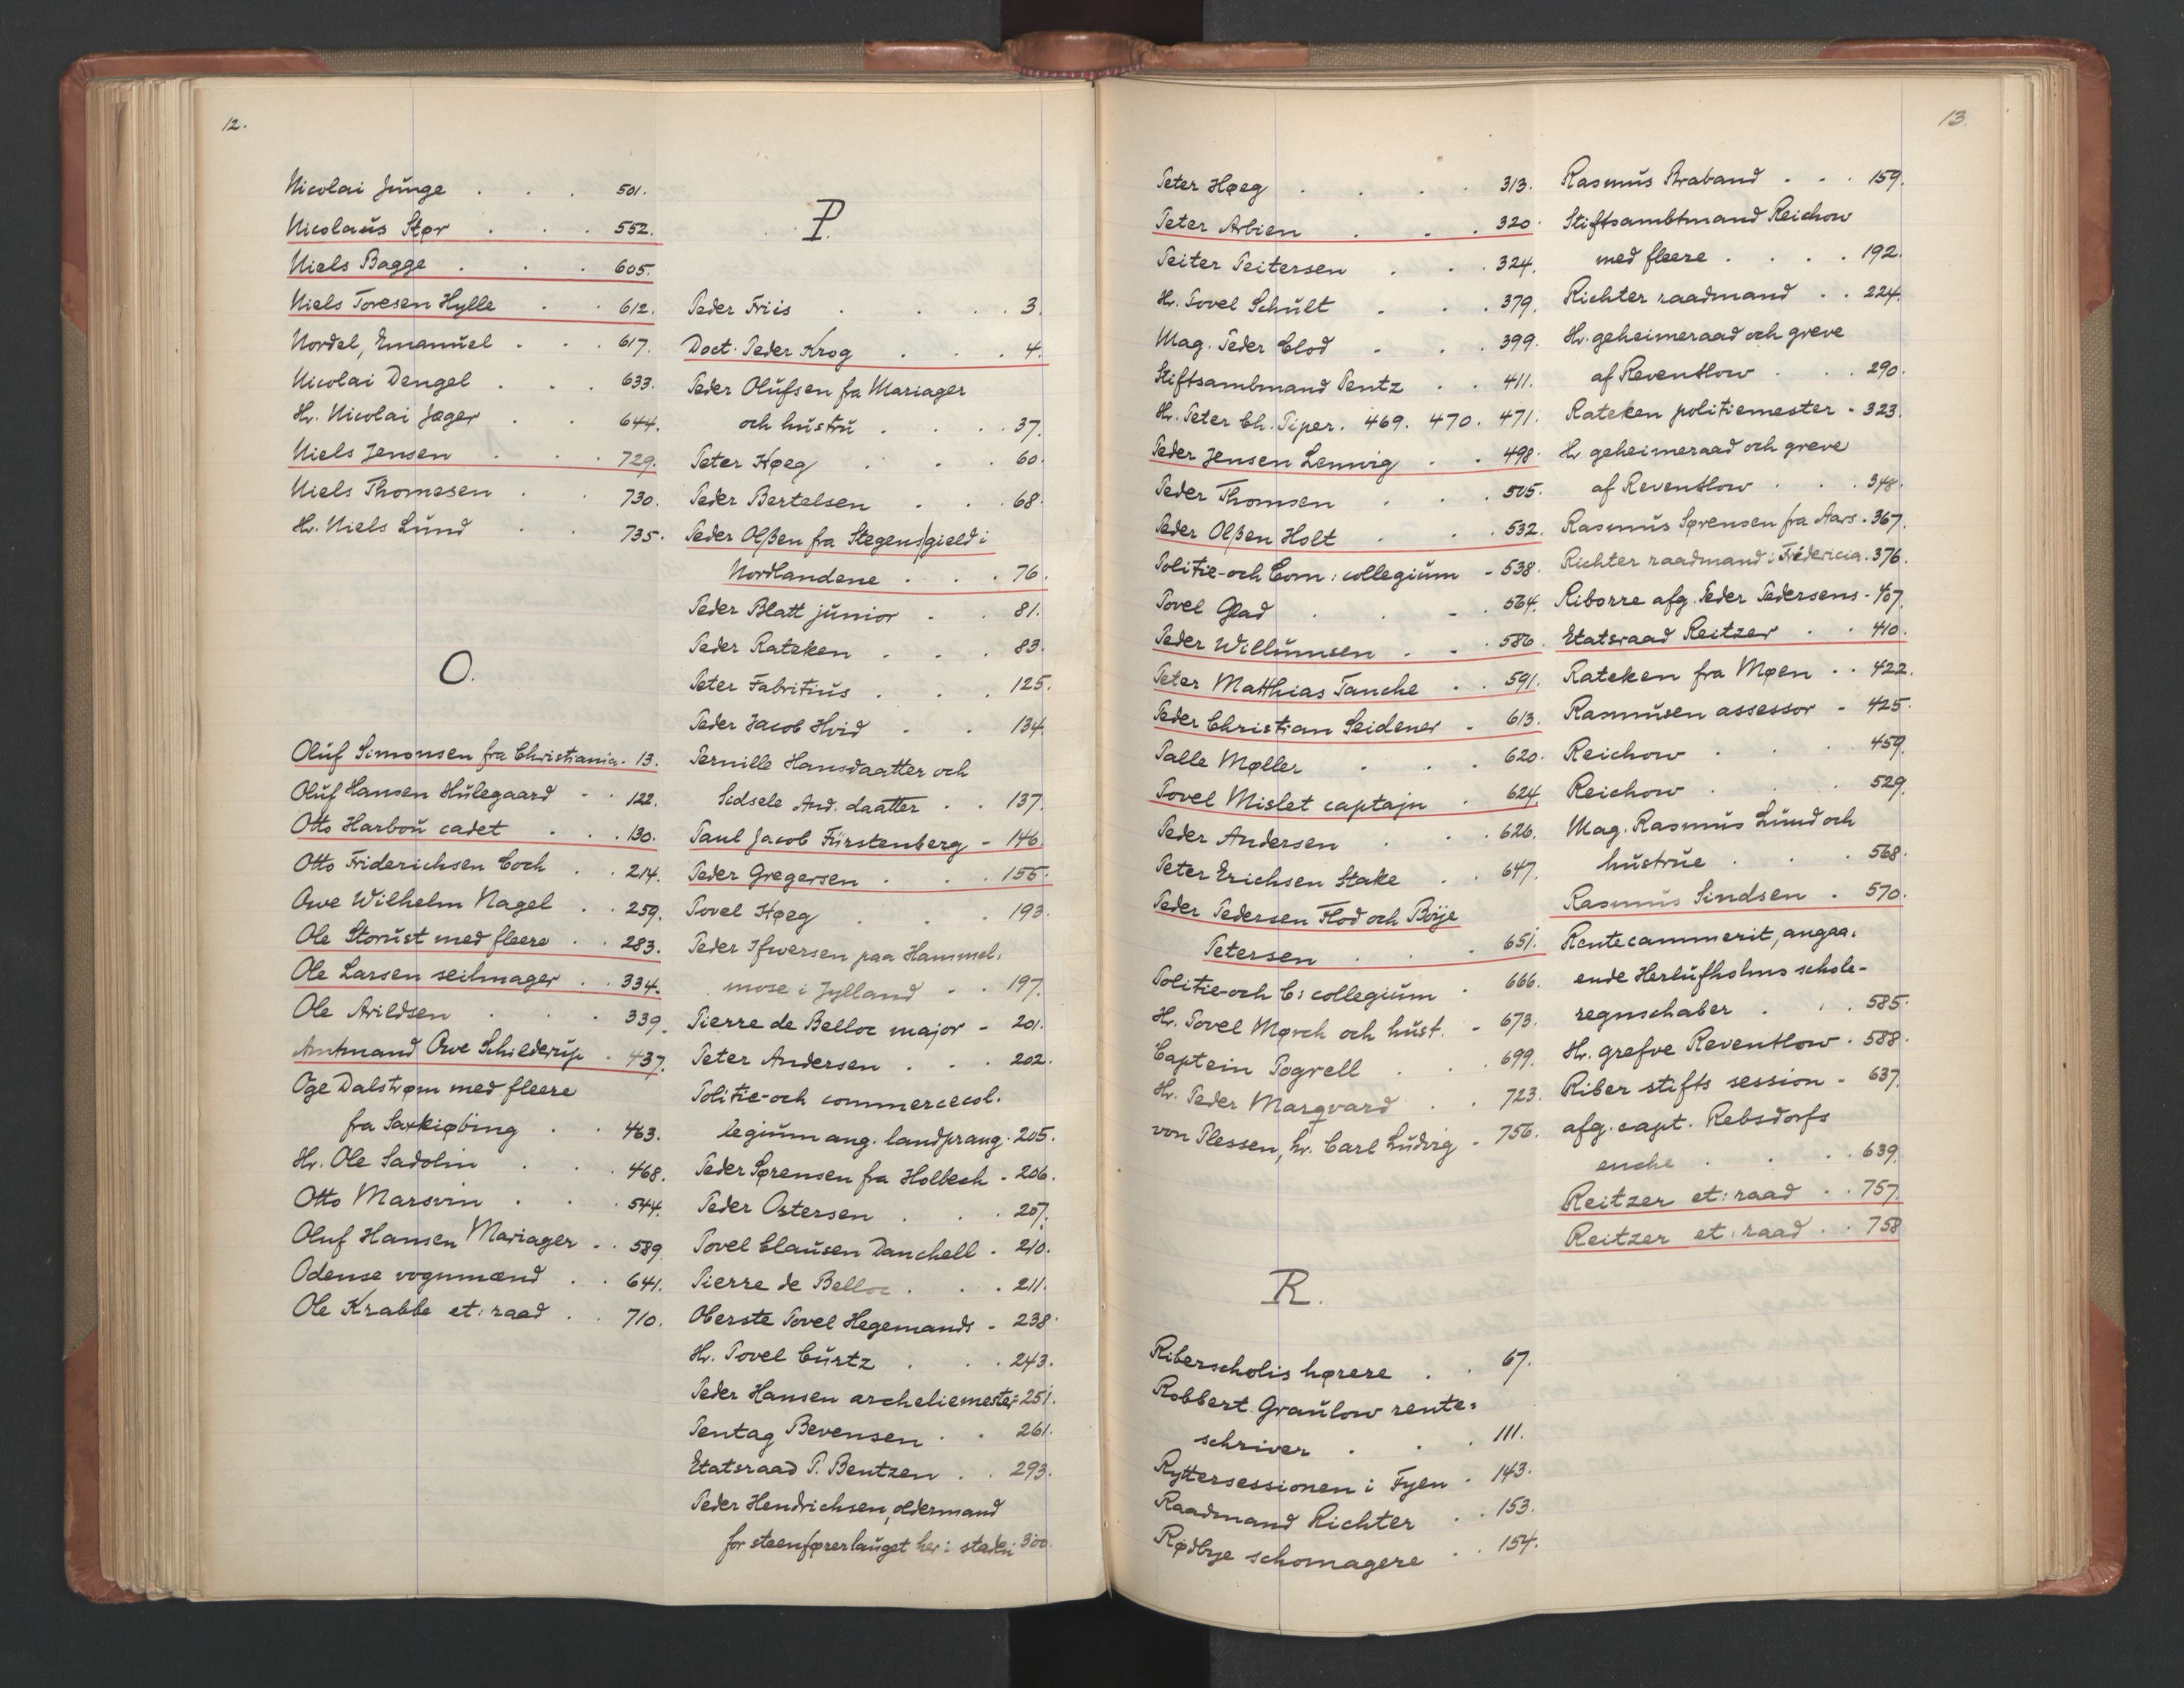 12.
Nicolai Junge . . . 501.
Nicolaus Stør . . . 552.
Niels Bagge . . . 605.
Niels Toresen Hylle . . 612.
Nordel, Emanuel . . . 617.
Nicolai Dengel . . . 633.
Hr. Nicolai Jæger . . 644.
Niels Jensen . . . 729.
Niels Thomesen . . 730.
Hr. Niels Lund . . 735.
O.
Oluf Simonsen fra Christiania. 13.
Oluf Hansen Hulegaard . . 122.
Otto Harbou cadet . . . 130.
Otto Friderichsen Coch . . 214.
Owe Wilhelm Nagel . . 259.
Ole Stoxust med fleere . . 283.
Ole Larsen seilmager . . 334.
Ole Arildsen . . . 339.
Amtmand Owe Schilderup . 437.
Oge Dalstrøm med fleere
fra Saxkiøbing . . 463.
Hr. Ole Sadolin . . . 468.
Otto Marsvin . . . 544.
Oluf Hansen Mariager . . 589.
Odense vognmænd . . 641.
Ole Krabbe et: raad . . 710.
P.
Peder Friis . . . . 3.
Doct. Peder Krog . . . 4.
Peder Olufsen fra Mariager
och hustru . . . . 37.
Peter Høeg . . . 60.
Peder Bertelsen . . . 68.
Peder Olßen fra Stegens gield i
Nordlandene . . . 76.
Peder Blatt junior . . 81.
Peder Rateken . . . 83.
Peter Fabritius . . . 125.
Peder Jacob Hvid . . 134.
Pernille Hansdaatter och
Sidsele And. daatter . . 137.
Paul Jacob Fürstenberg - 146.
Peder Gregersen . . . 155.
Povel Høeg . . . 193.
Peder Ifwersen paa Hammel-
mose i Jylland . . 197.
Pierre de Belloc major - 201.
Peter Andersen . . . 202.
Politie-och commercecol-
legium ang. landprang. 205.
Peder Sørensen fra Holbech . 206.
Peder Ostersen . . . 207.
Povel Clausen Danchell . 210.
Pierre de Belloc . . . 211.
Oberste Povel Hegemands . 238.
Hr. Povel Curtz . . . 243.
Peder Hansen archeliemester 251.
Pentag Bevensen . . 261.
Etatsraad P. Bentzen . . 293.
Peder Hendrichsen, oldermand
for steenførerlauget her i staden 300.
13.
Peter Høeg . . . . 313.
Peter Arbien . . . 320.
Peiter Peitersen . . . 324.
Hr. Povel Schult . . . 379.
Mag. Peder Clod . . . 399.
Stiftsambmand Pentz . . 411.
Hr. Peter Ch. Piper. 469. 470. 471.
Peder Jensen Lemvig . . 498.
Peder Thomsen . . . 505.
Peder Olßen Holt . . . 532.
Politie-och Com: collegium - 538.
Povel Glad . . . . 564.
Peder Willumsen . . . 586.
Peter Matthias Tanche . . 591.
Peder Christian Seidener - 613.
Palle Møller . . . 620.
Povel Mislet captajn . 624.
Peder Andersen . . . 626.
Peter Erichsen Stake . . 647.
Peder Pedersen Flod och Börje
Petersen . . . 651.
Politie-och C: collegium . 666.
Hr. Povel Mørch och hust. - 673.
Captein Pogrell . . . 699.
Hr. Peder Marqvard . . 723.
von Plessen, hr. Carl Ludvig - 756.
R.
Riberscholis hørere . . 67.
Robbert Graulow rente-
schriver . . . 111.
Ryttersessionen i Fyen . 143.
Raadmand Richter . . 153.
Rødbye schomagere . . 154.
Rasmus Braband . . . 159.
Stiftsambtmand Reichow
med fleere . . . . 192.
Richter raadmand . . 224.
Hr. geheimeraad och greve
af Reventlow . . . 290.
Rateken politiemester - 323.
Hr. geheimeraad och greve
af Reventlow . . . 348.
Rasmus Sørensen fra Aars . 367.
Richter raadmand i Fridericia. 376.
Riborre afg. Peder Pedersens - 407.
Etatsraad Reitzer . . 410.
Rateken fra Møen . . 422.
Rasmusen assessor - 425.
Reichow . . . 459.
Reichow . . . 529.
Mag. Rasmus Lund och
hustrue . . . 568.
Rasmus Sindsen . 570.
Rentecammerit, angaa-
ende Herlufholms schole-
regnschaber . . . 585.
Hr. grefve Reventlow . 588.
Riber stifts session - 637.
afg. capt. Rebsdorfs
enche . . . . 639.
Reitzer et: raad . . 757.
Reitzer et: raad . . 758